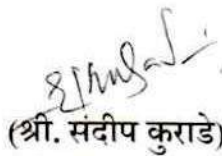 (श्री. संदीप कुराडे)